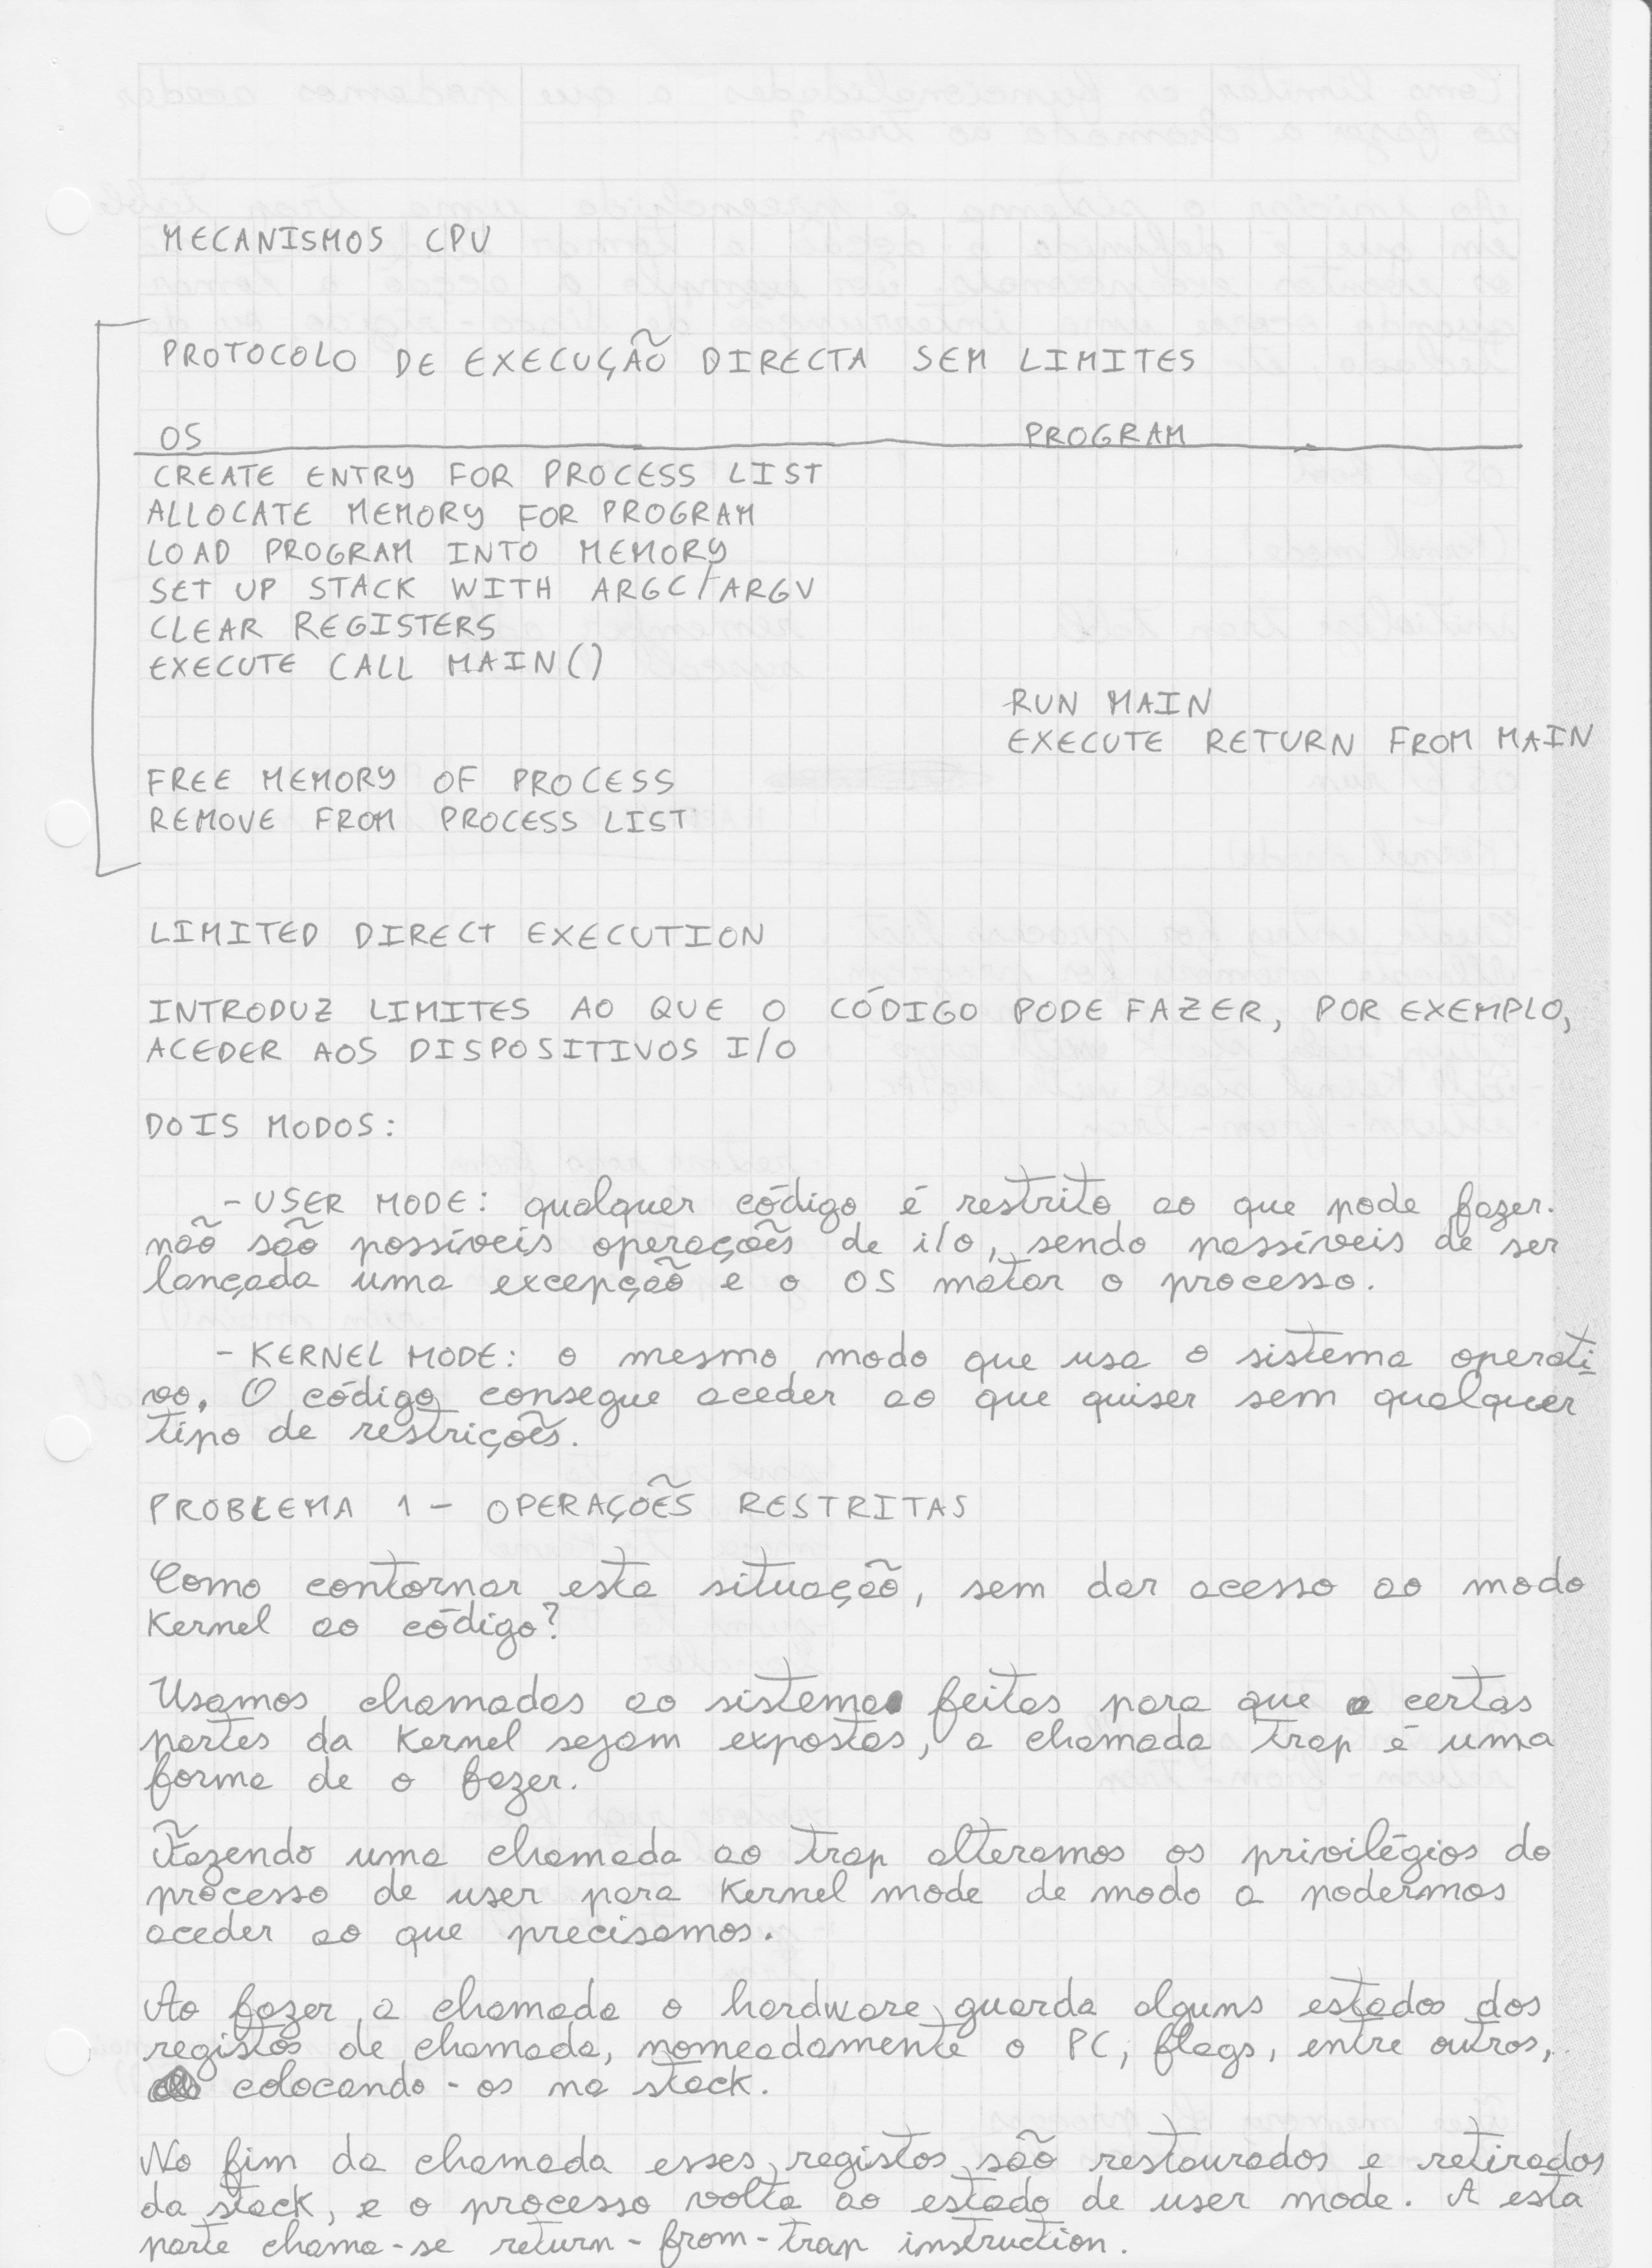 MECANISMOS CPU
PROTOCOLO DE EXECUÇÃO DIRECTA SEM LIMITES
OS PROGRAM
CREATE ENTRY FOR PROCESS LIST
ALLOCATE MEMORY FOR PROGRAM
LOAD PROGRAM INTO MEMORY
SET UP STACK WITH ARGC/ARGV
CLEAR REGISTERS
EXECUTE CALL MAIN()
RUN MAIN
EXECUTE RETURN FROM MAIN
FREE MEMORY OF PROCESS
REMOVE FROM PROCESS LIST
LIMITED DIRECT EXECUTION
INTRODUZ LIMITES AO QUE O CÓDIGO PODE FAZER, POR EXEMPLO,
ACEDER AOS DISPOSITIVOS I/O
DOIS MODOS:
- USER MODE: qualquer código é restrito ao que pode fazer.
não são possíveis operações de i/o, sendo passíveis de ser
lançada uma excepção e o OS matar o processo.
- KERNEL MODE: o mesmo modo que usa o sistema operati-
vo. O código consegue aceder ao que quiser sem qualquer
tipo de restrições.
PROBLEMA 1 - OPERAÇÕES RESTRITAS
Como contornar esta situação, sem dar acesso ao modo
Kernel ao código?
Usamos chamadas ao sistema feitas para que a certas
partes da Kernel sejam expostas, a chamada trap é uma
forma de o fazer.
Fazendo uma chamada ao trap alteramos os privilégios do
processo de user para Kernel mode de modo a podermos
aceder ao que precisamos.
Ao fazer a chamada o hardware guarda alguns estados dos
registos de chamada, nomeadamente o PC, flags, entre outros,
colocando-os na stack.
No fim da chamada esses registos são restaurados e retirados
da stack, e o processo volta ao estado de user mode. A esta
parte chama-se return-from-trap instruction.